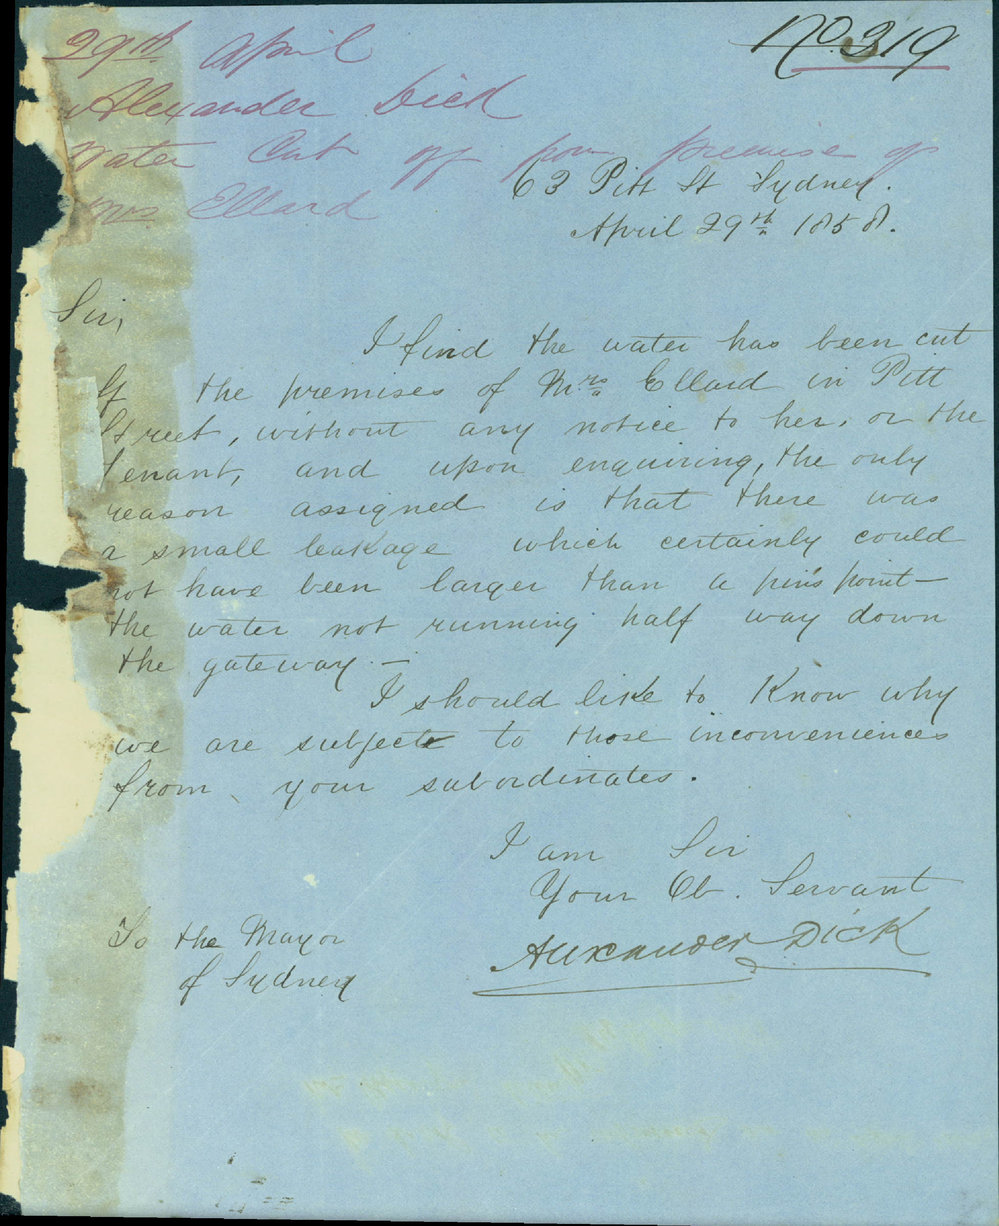 No. 319
29th. April
Alexander Dick
Water Cut off from premise of
Mrs Ellard
63 Pitt St Sydney.
April 29th 1858.
Sir,
I find the water has been cut
off the premises of Mrs Ellard in Pitt
Street, without any notice to her, or the
tenant, and upon enquiring, the only
reason assigned is that there was
a small leakage which certainly could
not have been larger than a pin's point—
the water not running half way down
the gateway.—
I should like to know why
we are subject to those inconveniences
from your subordinates.
I am Sir
Your Ob. Servant
Alexander Dick
To the Mayor
of Sydney